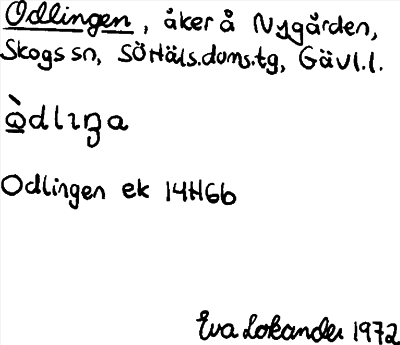 Odlingen, åker å Nygården,
Skogs sn, SöHäls.doms.tg, Gävl.l.
ò̱dlıŋa
Odlingen ek 14H6b
Eva Lokander 1972